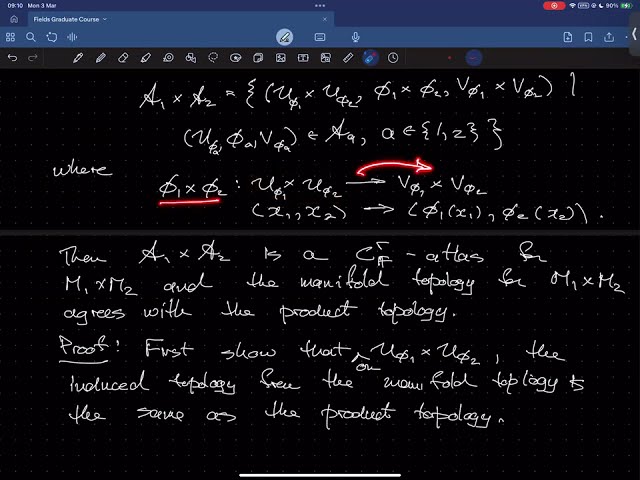 09:10 Mon 3 Mar
90%
Fields Graduate Course
A₁ × A₂ = { (U_ϕ₁ × U_ϕ₂, ϕ₁ × ϕ₂, V_ϕ₁ × V_ϕ₂) |
(U_ϕₐ, ϕₐ, V_ϕₐ) ∈ Aₐ, a ∈ {1,2} }
where
ϕ₁ × ϕ₂ : U_ϕ₁ × U_ϕ₂ → V_ϕ₁ × V_ϕ₂
(x₁, x₂) → (ϕ₁(x₁), ϕ₂(x₂)).
Then A₁ × A₂ is a C_F^r - atlas for
M₁ × M₂ and the manifold topology for M₁ × M₂
agrees with the product topology.
Proof: First show that on U_ϕ₁ × U_ϕ₂, the
induced topology from the manifold toplogy is
the same as the product topology.